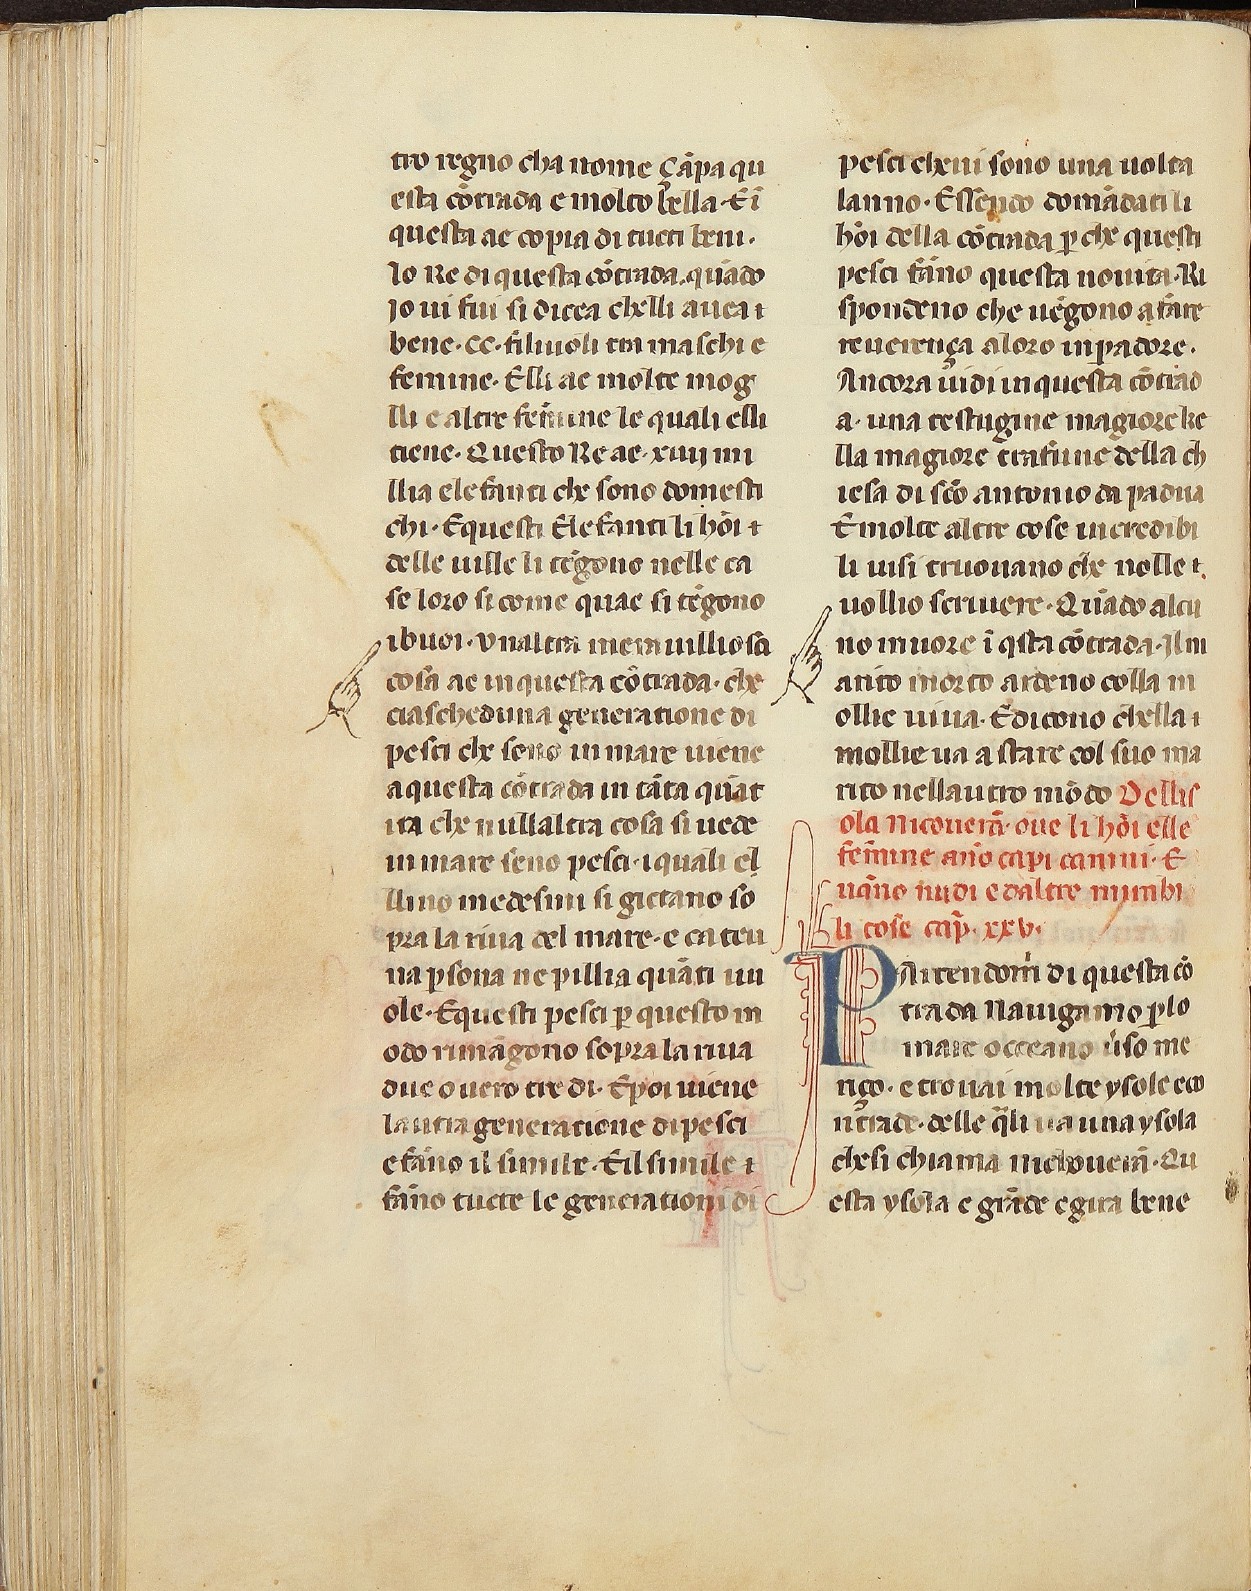 tro regno cha nome Çãpa qu
esta cõtrada e molto bella · E ĩ
questa ae copia di tucti beni ·
lo Re di questa cõtrada · quãdo
Jo ui fui si dicea chelli auea ⁊
bene · CC · filiuoli tra maschi e
femine · Elli ae molte mog
lli e altre femine le quali elli
tiene · Questo Re ae · xiiij mi
llia elefanti che sono domesti
chi · E questi Elefanti li hõi ⁊
delle uille li tẽgono nelle ca
se loro si come quae si tẽgono
i buoi · Vnaltra merauilliosa
cosa ae in questa cõtrada · che
ciascheduna generatione di
pesci che sono in mare uiene
a questa cõtrada in tãta quãt
ita che nullaltra cosa si uede
in mare seno pesci · i quali el
llino medesimi si gittano so
pra la riua del mare · e cateu
na ꝑsona ne pillia quãti uu
ole · E questi pesci ꝑ questo m
odo rimãgono sopra la riua
due o uero tre di · E poi uiene
lautra generatione di pesci
e fãno il simile · E il simile ⁊
fãno tucte le generationi di
pesci che iui sono una uolta
lanno · Essẽdo domãdati li
hõi della cõtrada ꝑ che questi
pesci fãno questa nouita · Ri
spondeno che uẽgono a fare
reuerença a loro inꝑadore ·
Ancora uidi in questa cõtrad
a · una testugine magiore ke
lla magiore trafune della ch
iesa di scõ antonio da padua
E molte altre cose incredibi
li uisi truouano che nolle ⁊
uollio scriuere · Quãdo alcu
no muore ĩ q̃sta cõtrada · Il m
arito morto ardeno colla m
ollie uiua · E dicono chella ⁊
mollie ua a stare col suo ma
rito nellautro mõdo Dellis
ola Nicouerã · oue li hõi elle
femine ãno capi canini · E
uãno nudi e daltre mirabi
li cose cap̃ · xxv ·
PArtendomi di questa cõ
trada Nauigamo ꝑ lo
mare occeano uerso me
riço · e trouai molte ysole e co
ntrade · delle q̃li ua una ysola
che si chiama nichouerã · Qu
esta ysola e grãde e gira bene